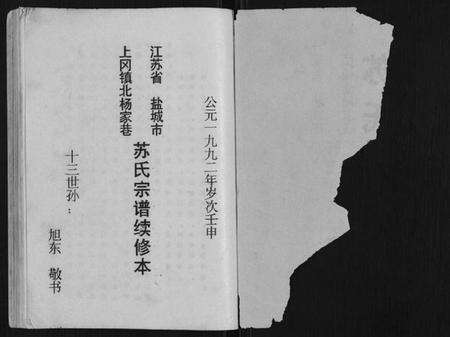 公元一九九二年岁次壬申
江苏省 盐城市
上冈镇北杨家巷
苏氏宗谱续修本
十三世孙：
旭东 敬书